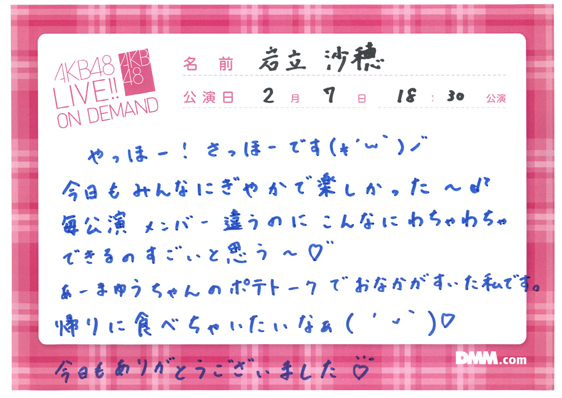 AKB48
LIVE!!
ON DEMAND
AKB
48
名前 岩立 沙穂
公演日 2月 7日 18:30 公演
やっほー！さっほーです(*´ω`)ノ
今日もみんなにぎやかで楽しかった〜♪
毎公演 メンバー違うのに こんなに わちゃわちゃ
できるのすごいと思う〜♡
あーまゆうちゃんの ポテトークで おなかがすいた私です。
帰りに食べちゃいたいなぁ(´ᴗ`)♡
今日もありがとうございました
DMM.com